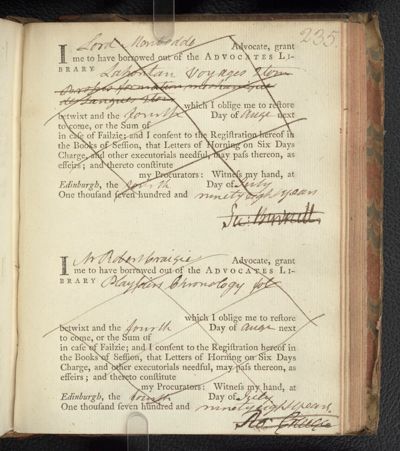 235.
I Lord Monboddo Advocate, grant
me to have borrowed out of the ADVOCATES LI-
BRARY Lahontan Voyages 2 tom
des langues 2 tom
which I oblige me to reſtore
betwixt and the fourth Day of Auge next
to come, or the Sum of
in caſe of Failzie; and I conſent to the Regiſtration hereof in
the Books of Seſſion, that Letters of Horning on Six Days
Charge, and other executorials needful, may paſs thereon, as
effeirs; and thereto conſtitute
my Procurators: Witneſs my hand, at
Edinburgh, the fourth Day of July
One thouſand ſeven hundred and ninety eight years
Ja: Burnett.
I Mr Robert Craigie Advocate, grant
me to have borrowed out of the ADVOCATES LI-
BRARY Playfairs Chronology fol
which I oblige me to reſtore
betwixt and the fourth Day of Auge next
to come, or the Sum of
in caſe of Failzie; and I conſent to the Regiſtration hereof in
the Books of Seſſion, that Letters of Horning on Six Days
Charge, and other executorials needful, may paſs thereon, as
effeirs; and thereto conſtitute
my Procurators: Witneſs my hand, at
Edinburgh, the fourth Day of July
One thouſand ſeven hundred and ninety eight years
Ro: Craigie